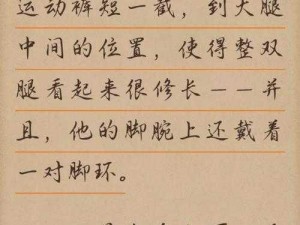 运动裤短一截，到大腿
中间的位置，使得整双
腿看起来很修长——并
且，他的脚腕上还戴着
一对脚环。